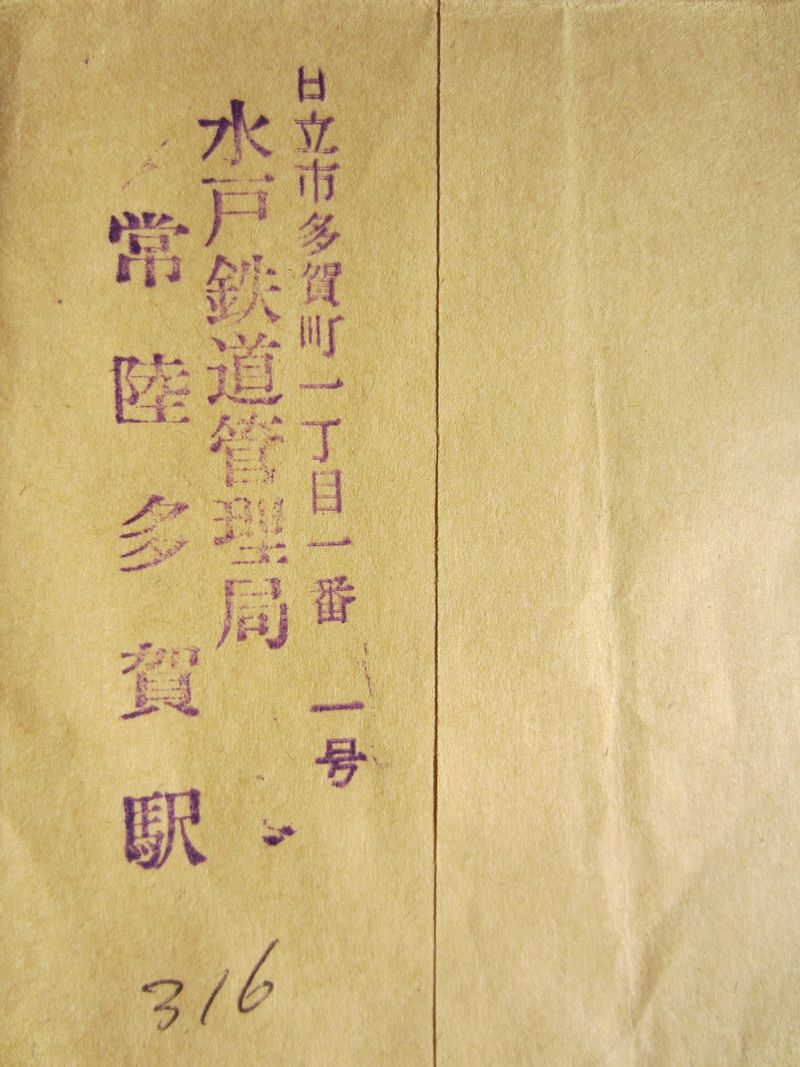 日立市多賀町一丁目一番一号
水戸鉄道管理局
常陸多賀駅
316